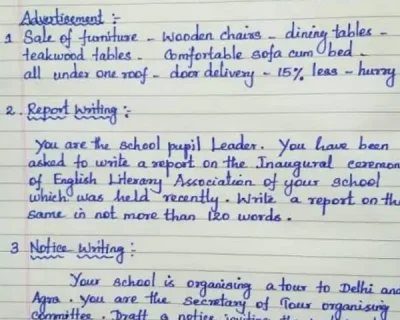 Advertisement :-
1 Sale of furniture - wooden chairs - dining tables -
teakwood tables - Comfortable sofa cum bed -
all under one roof - door delivery - 15% less - hurry
2. Report Writing :-
You are the school pupil Leader. You have been
asked to write a report on the Inaugural ceremon
of English Literary Association of your school
which was held recently. Write a report on the
same in not more than 120 words.
3 Notice Writing :-
Your school is organising a tour to Delhi and
Agra. You are the Secretary of Tour organising
committee. Draft a notice inviting the